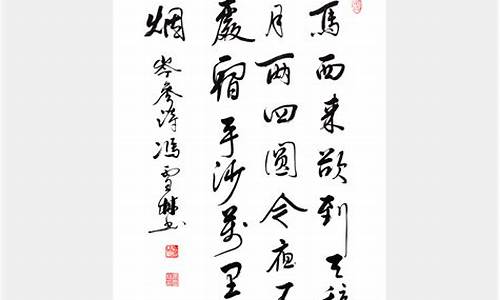 馬西来欲到天
月两回圓今夜不
處宿平沙萬里
烟
岑參詩馮雪林书